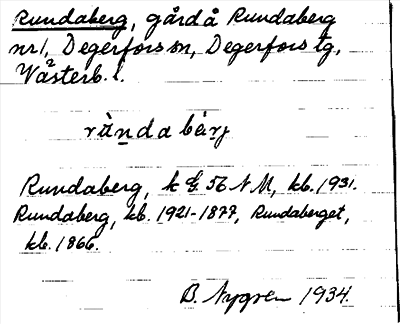 Rundaberg, gård å Rundaberg
nr 1, Degerfors sn, Degerfors tg,
Västerb. l.
rùndabærj
Rundaberg, k E 56 NM, kb. 1931.
Rundaberg, kb. 1921-1877, Rundaberget,
kb. 1866.
B. Nygren 1934.